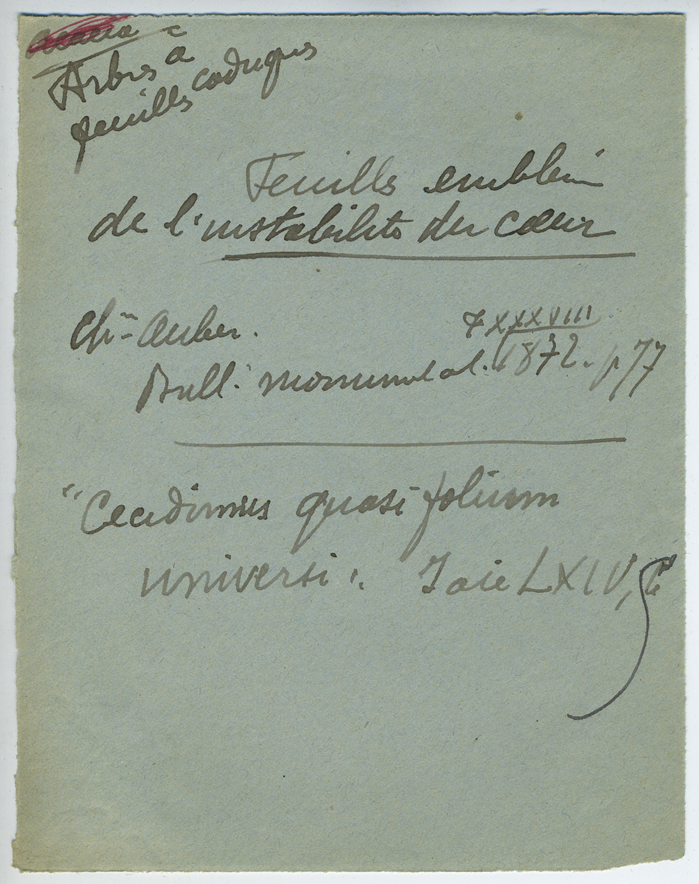 Arbres à
feuilles caduques
Feuilles emblèm
de l'instabilité du cœur
Chne Auber.
T XXXVIII
Bull. monumental. 1872. p 77
"Cecidimus quasi folium
universi". Isaie LXIV, 6